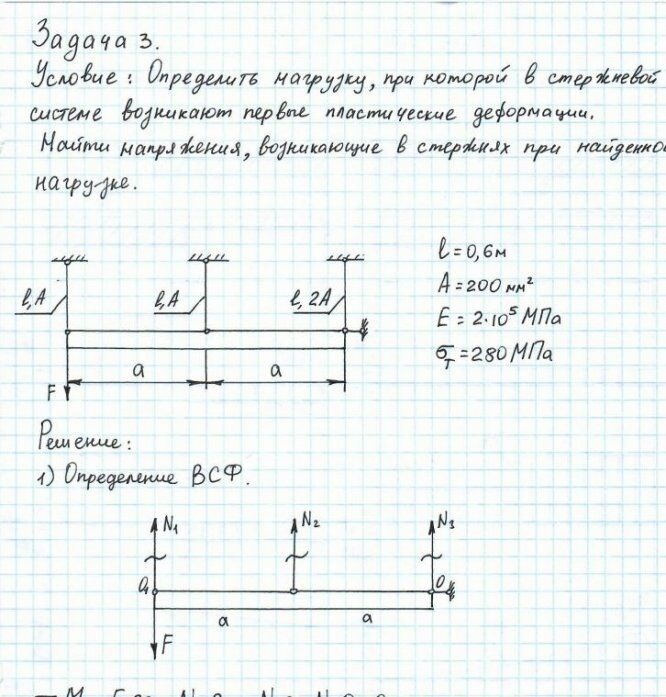 Задача 3.
Условие: Определить нагрузку, при которой в стержневой
системе возникают первые пластические деформации.
Найти напряжения, возникающие в стержнях при найденно
нагрузке.
l, A l, A l, 2A
l = 0,6 м
A = 200 мм²
E = 2·10⁵ МПа
σт = 280 МПа
a a
F
Решение:
1) Определение ВСФ.
N₁ N₂ N₃
O₁ O
a a
F